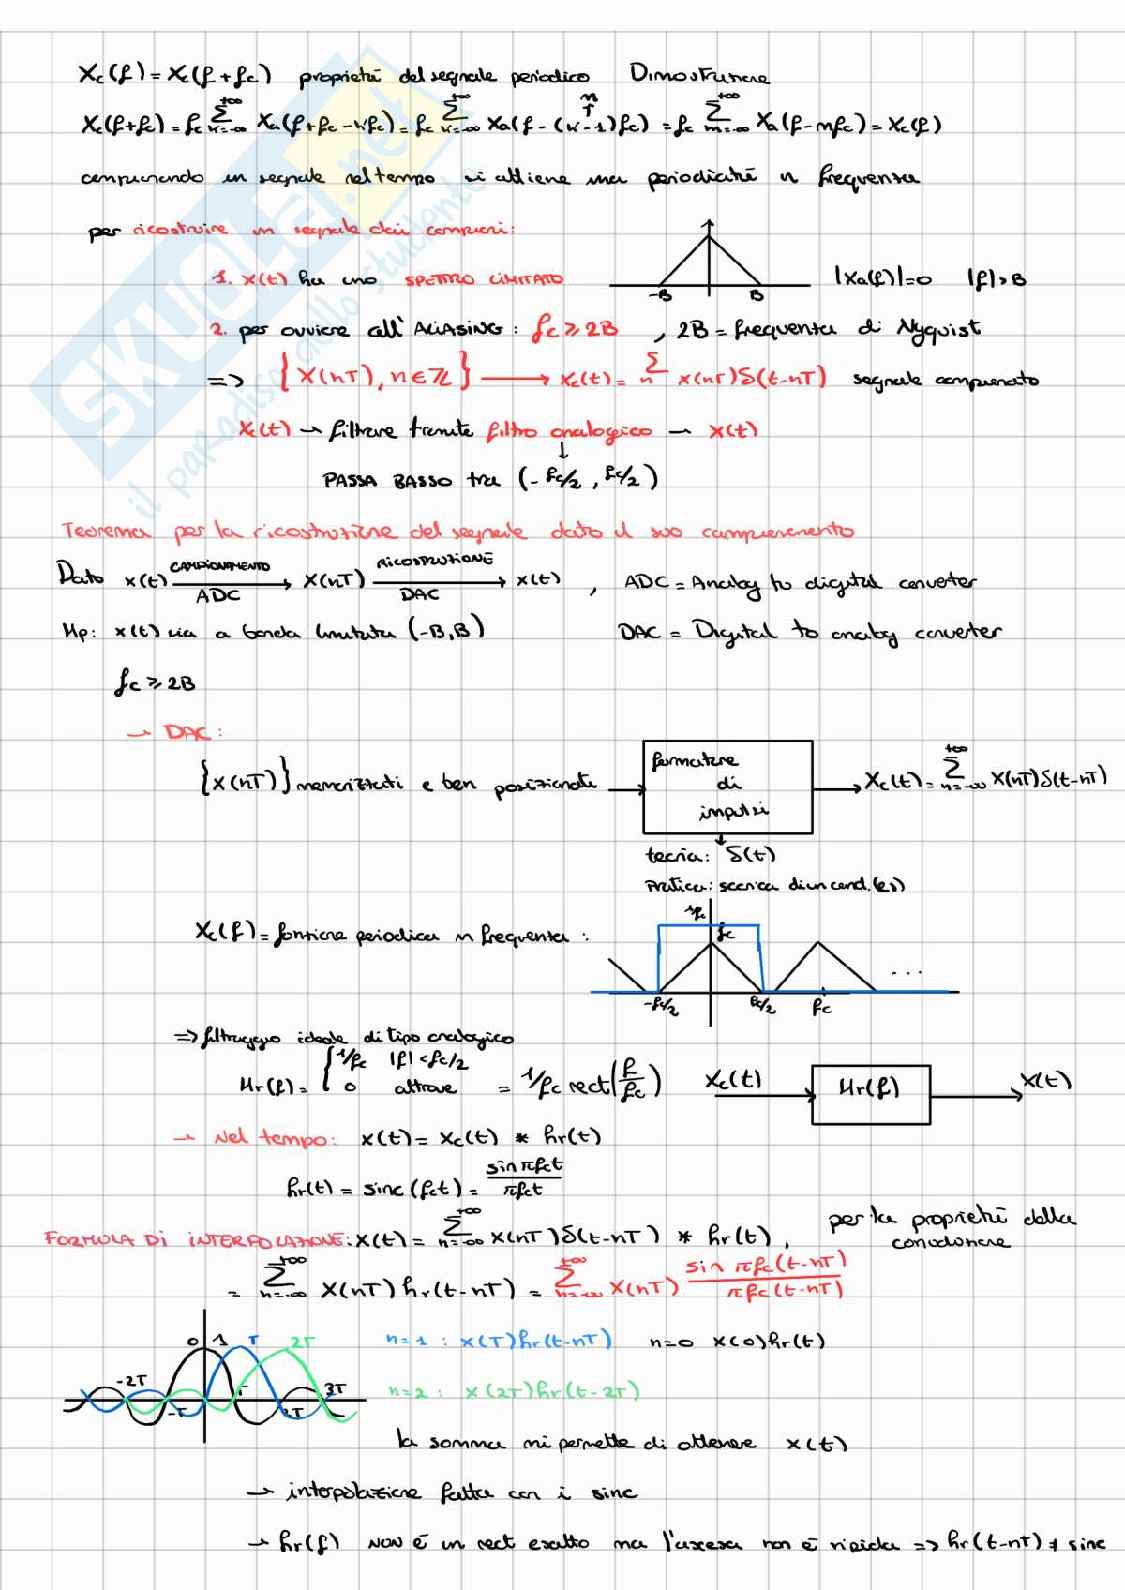 Xc(f) = Xc(f+fc) proprietà del segnale periodico Dimostrazione
Xc(f+fc) = fc Σ_{n=-∞}^{+∞} Xa(f+fc-nfc) = fc Σ_{n=-∞}^{+∞} Xa(f-(n-1)fc) = fc Σ_{m=-∞}^{+∞} Xa(f-mfc) = Xc(f)
m
campionando un segnale nel tempo si ottiene una periodicità in frequenza
per ricostruire un segnale dai campioni:
1. x(t) ha uno SPETTRO LIMITATO
-B B
|Xa(f)|=0 |f|>B
2. per ovviare all'ALIASING: fc ≥ 2B , 2B = frequenza di Nyquist
=> {X(nT), n∈ℤ} → xc(t) = Σ_n x(nT)δ(t-nT) segnale campionato
xc(t) → filtrare tramite filtro analogico → x(t)
↓
PASSA BASSO tra (-fc/2, fc/2)
Teorema per la ricostruzione del segnale dato il suo campionamento
Dato x(t) CAMPIONAMENTO → ADC x(nT) RICOSTRUZIONE → DAC x(t) , ADC = Analog to digital converter
Hp: x(t) sia a banda limitata (-B,B) DAC = Digital to analog converter
fc ≥ 2B
→ DAC:
{x(nT)} memorizzati e ben posizionati → formatore di impulsi → Xc(t) = Σ_{n=-∞}^{+∞} x(nT)δ(t-nT)
teoria: δ(t)
Pratica: scarica di un cond.(es)
Xc(f) = funzione periodica in frequenza:
1/fc fc
-fc/2 fc/2 fc ...
=> filtraggio ideale di tipo analogico
Hr(f) = { 1/fc |f|<fc/2
0 altrove = 1/fc rect(f/fc)
Xc(t) → Hr(f) → X(t)
→ Nel tempo: x(t) = xc(t) * hr(t)
hr(t) = sinc(fct) = sin πfct / πfct
FORMULA DI INTERPOLAZIONE: x(t) = Σ_{n=-∞}^{+∞} x(nT)δ(t-nT) * hr(t), per la proprietà della convoluzione
= Σ_{n=-∞}^{+∞} x(nT)hr(t-nT) = Σ_{n=-∞}^{+∞} x(nT) sin πfc(t-nT) / πfc(t-nT)
0 1 T 2T
-2T -T T 2T 3T
n=1 : x(T)hr(t-nT) n=0 x(0)hr(t)
n=2 : x(2T)hr(t-2T)
la somma mi permette di ottenere x(t)
→ interpolazione fatta con i sinc
→ hr(f) NON è un rect esatto ma l'ascesa non è ripida => hr(t-nT) ≠ sinc
SKUOLA.net
il paradiso dello studente